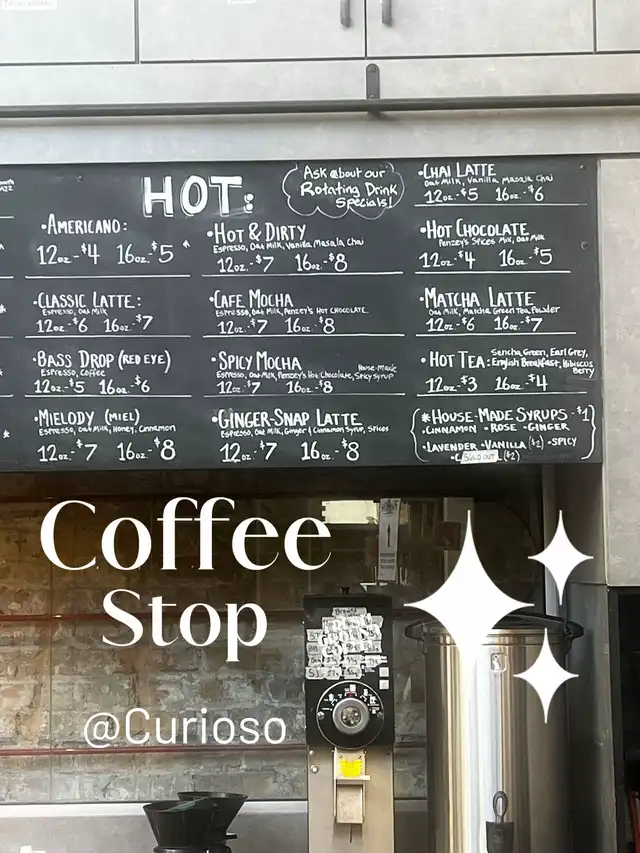 HOT:
Ask about our
Rotating Drink
Specials!
•AMERICANO:
12oz.-$4 16oz.-$5
•CLASSIC LATTE:
Espresso, Oat Milk
12oz-$6 16oz-$7
•BASS DROP (RED EYE)
Espresso, Coffee
12oz-$5 16oz-$6
•MIELODY (MIEL)
Espresso, Oat Milk, Honey, Cinnamon
12oz-$7 16oz.-$8
•HOT & DIRTY
Espresso, Oat Milk, Vanilla Masala Chai
12oz-$7 16oz.-$8
•CAFE MOCHA
Espresso, Oat Milk, Penzey's HOT CHOCOLATE
12oz-$7 16oz-$8
•SPICY MOCHA
Espresso, Oat Milk, Penzey's Hot Chocolate, House-Made Spicy Syrup
12oz-$7 16oz-$8
•GINGER-SNAP LATTE
Espresso, Oat Milk, Ginger & Cinnamon Syrup, Spices
12oz.-$7 16oz.-$8
•CHAI LATTE
Oat Milk, Vanilla Masala Chai
12oz-$5 16oz-$6
•HOT CHOCOLATE
Penzey's Spices Mix, Oat Milk
12oz-$4 16oz.-$5
•MATCHA LATTE
Oat Milk, Matcha Green Tea Powder
12oz-$6 16oz-$7
•HOT TEA: Sencha Green, Earl Grey,
English Breakfast, Hibiscus
Berry
12oz-$3 16oz-$4
*HOUSE-MADE SYRUPS-$1
•CINNAMON -ROSE -GINGER
•LAVENDER -VANILLA ($2) -SPICY
SOLD OUT ($2)
Coffee
Stop
@Curioso